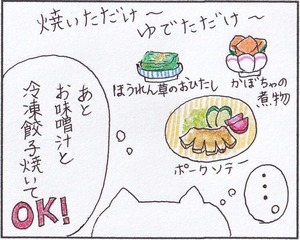 焼いただけ～
ゆでただけ～
ほうれん草のおひたし
かぼちゃの
煮物
ポークソテー
・・・・
あと
お味噌汁と
冷凍餃子焼いて
OK!